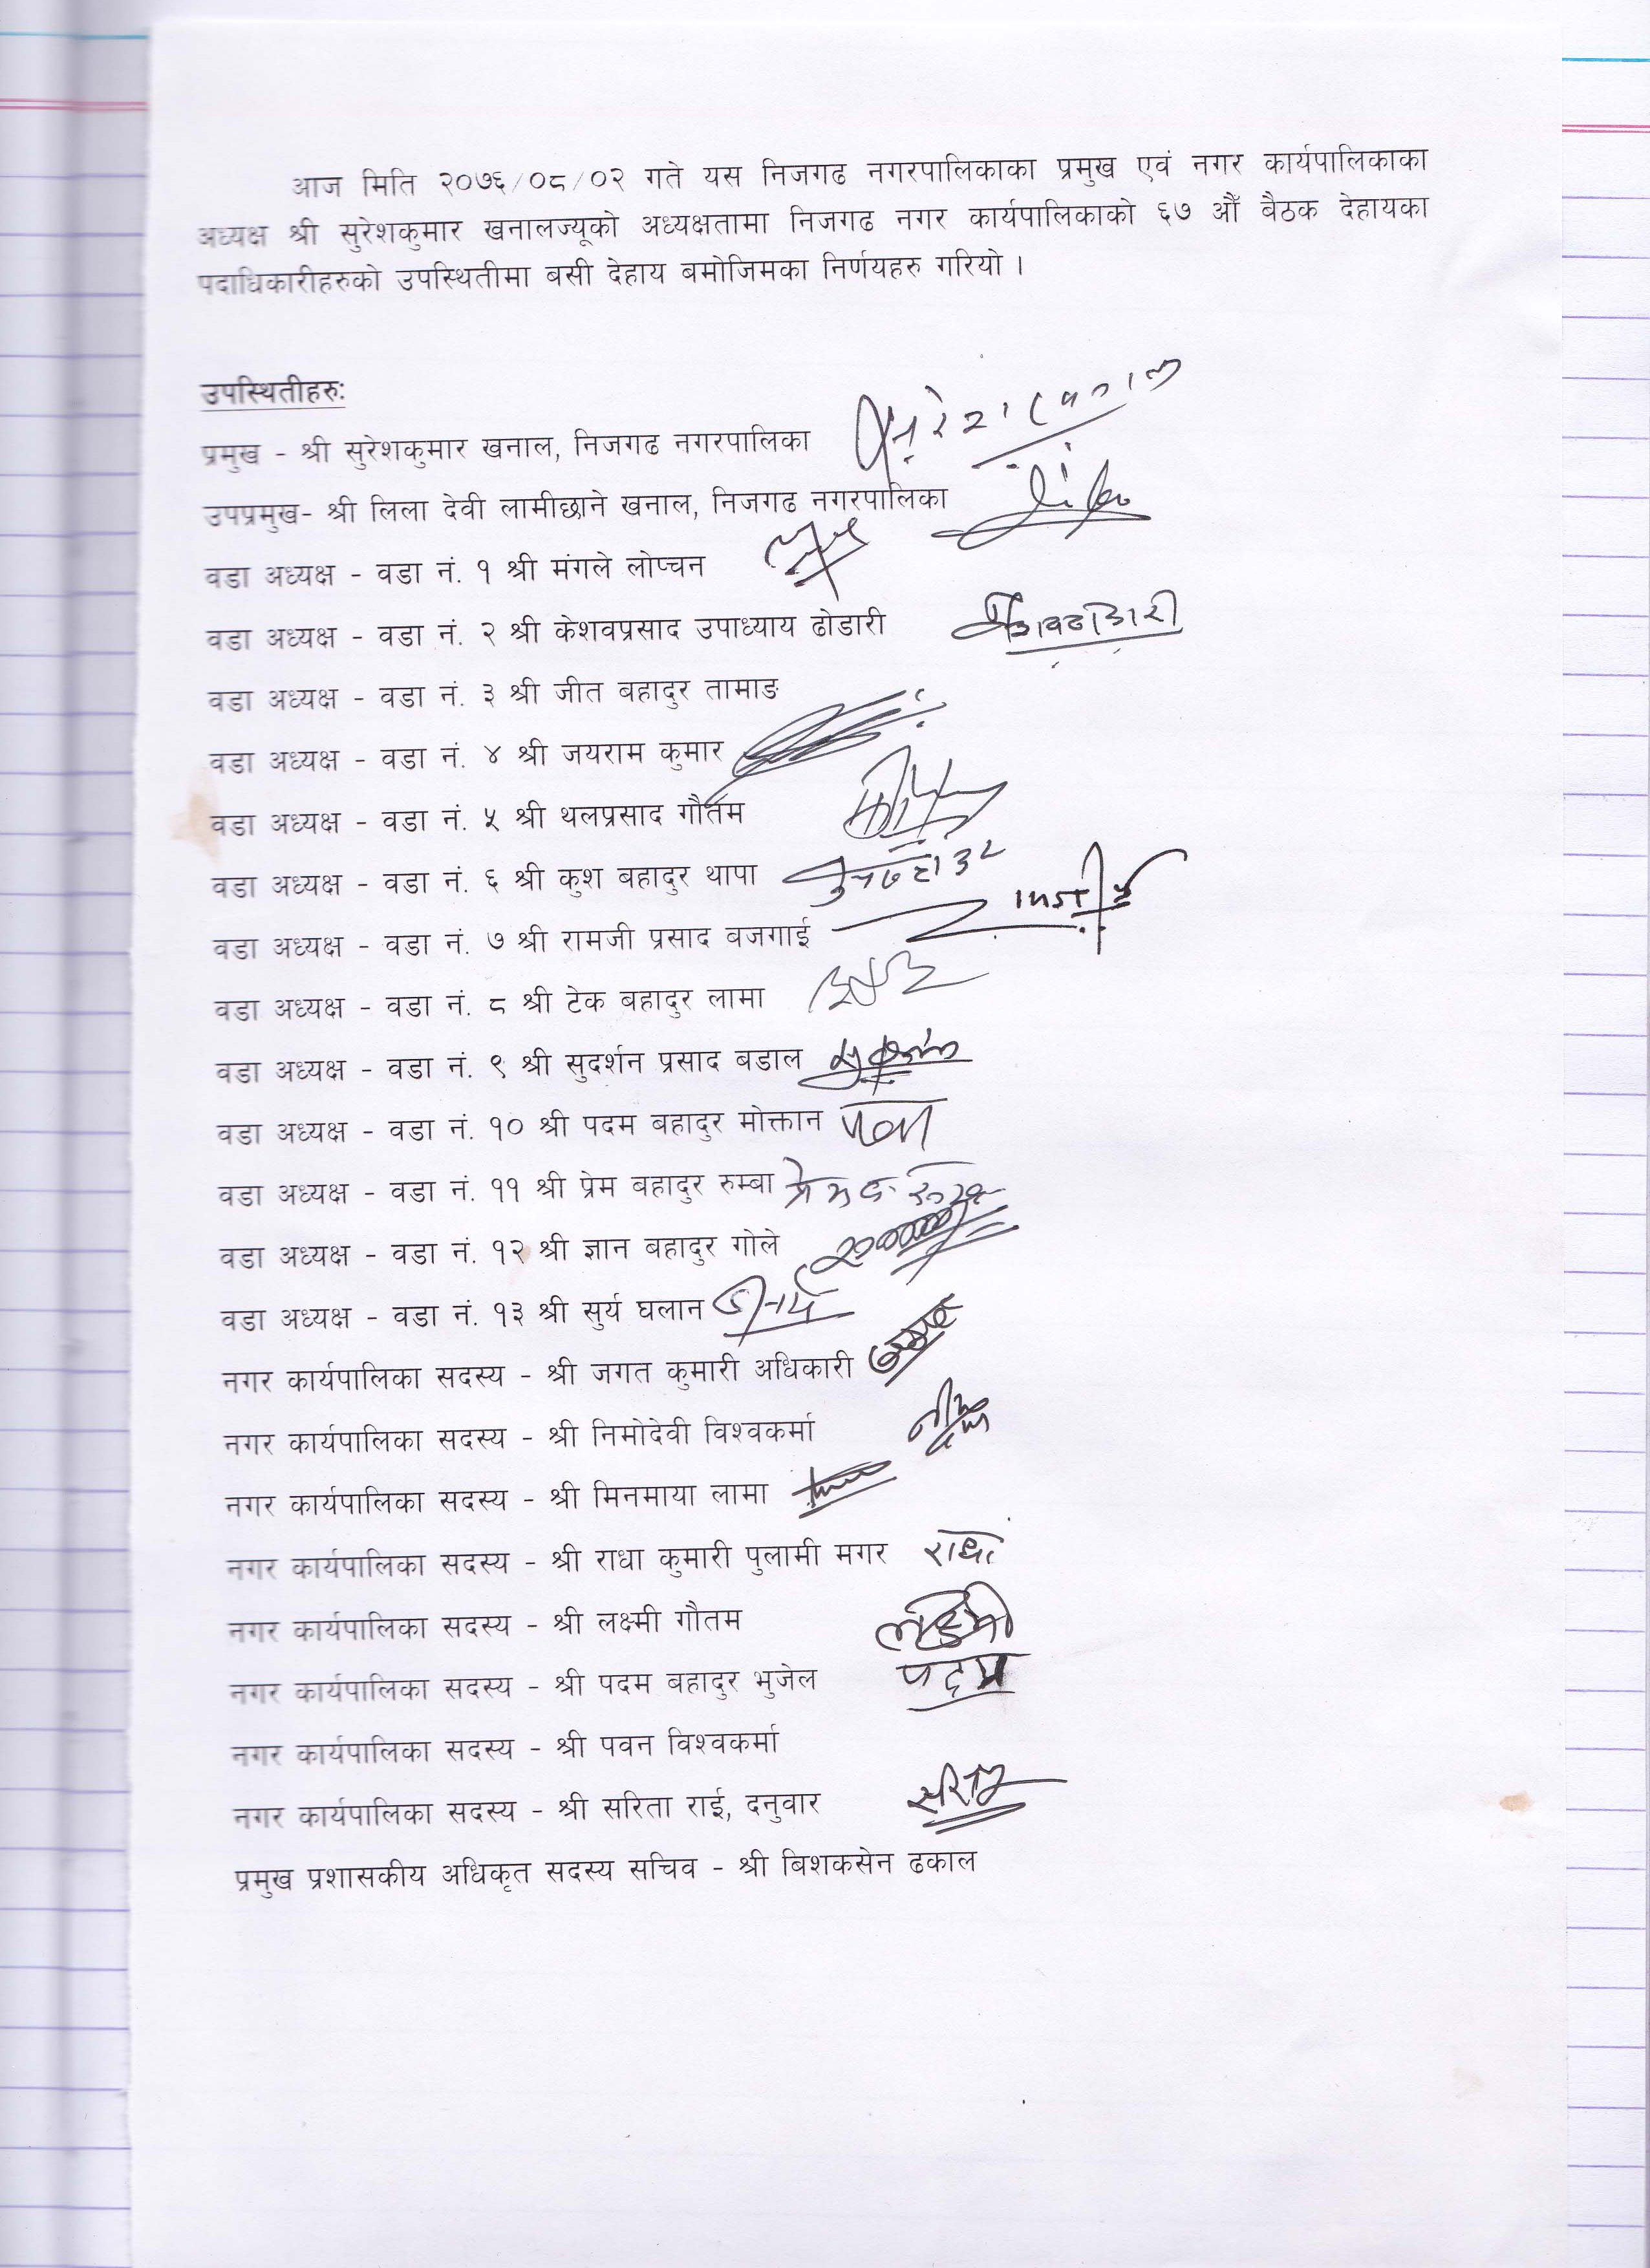 आज मिति २०७६/०८/०२ गते यस निजगढ नगरपालिकाका प्रमुख एवं नगर कार्यपालिकाका
अध्यक्ष श्री सुरेशकुमार खनालज्यूको अध्यक्षतामा निजगढ नगर कार्यपालिकाको ६७ औँ बैठक देहायका
पदाधिकारीहरुको उपस्थितीमा बसी देहाय बमोजिमका निर्णयहरु गरियो ।
उपस्थितीहरुः
प्रमुख - श्री सुरेशकुमार खनाल, निजगढ नगरपालिका
उपप्रमुख- श्री लिला देवी लामीछाने खनाल, निजगढ नगरपालिका
वडा अध्यक्ष - वडा नं. १ श्री मंगले लोप्चन
वडा अध्यक्ष - वडा नं. २ श्री केशवप्रसाद उपाध्याय ढोडारी
वडा अध्यक्ष - वडा नं. ३ श्री जीत बहादुर तामाङ
वडा अध्यक्ष - वडा नं. ४ श्री जयराम कुमार
वडा अध्यक्ष - वडा नं. ५ श्री थलप्रसाद गौतम
वडा अध्यक्ष - वडा नं. ६ श्री कुश बहादुर थापा
वडा अध्यक्ष - वडा नं. ७ श्री रामजी प्रसाद बजगाई
वडा अध्यक्ष - वडा नं. ८ श्री टेक बहादुर लामा
वडा अध्यक्ष - वडा नं. ९ श्री सुदर्शन प्रसाद बडाल
वडा अध्यक्ष - वडा नं. १० श्री पदम बहादुर मोक्तान
वडा अध्यक्ष - वडा नं. ११ श्री प्रेम बहादुर रुम्बा
वडा अध्यक्ष - वडा नं. १२ श्री ज्ञान बहादुर गोले
वडा अध्यक्ष - वडा नं. १३ श्री सुर्य घलान
नगर कार्यपालिका सदस्य - श्री जगत कुमारी अधिकारी
नगर कार्यपालिका सदस्य - श्री निमोदेवी विश्वकर्मा
नगर कार्यपालिका सदस्य - श्री मिनमाया लामा
नगर कार्यपालिका सदस्य - श्री राधा कुमारी पुलामी मगर राधा
नगर कार्यपालिका सदस्य - श्री लक्ष्मी गौतम लक्ष्मी
नगर कार्यपालिका सदस्य - श्री पदम बहादुर भुजेल पदम
नगर कार्यपालिका सदस्य - श्री पवन विश्वकर्मा
नगर कार्यपालिका सदस्य - श्री सरिता राई, दनुवार सरिता
प्रमुख प्रशासकीय अधिकृत सदस्य सचिव - श्री बिशकसेन ढकाल